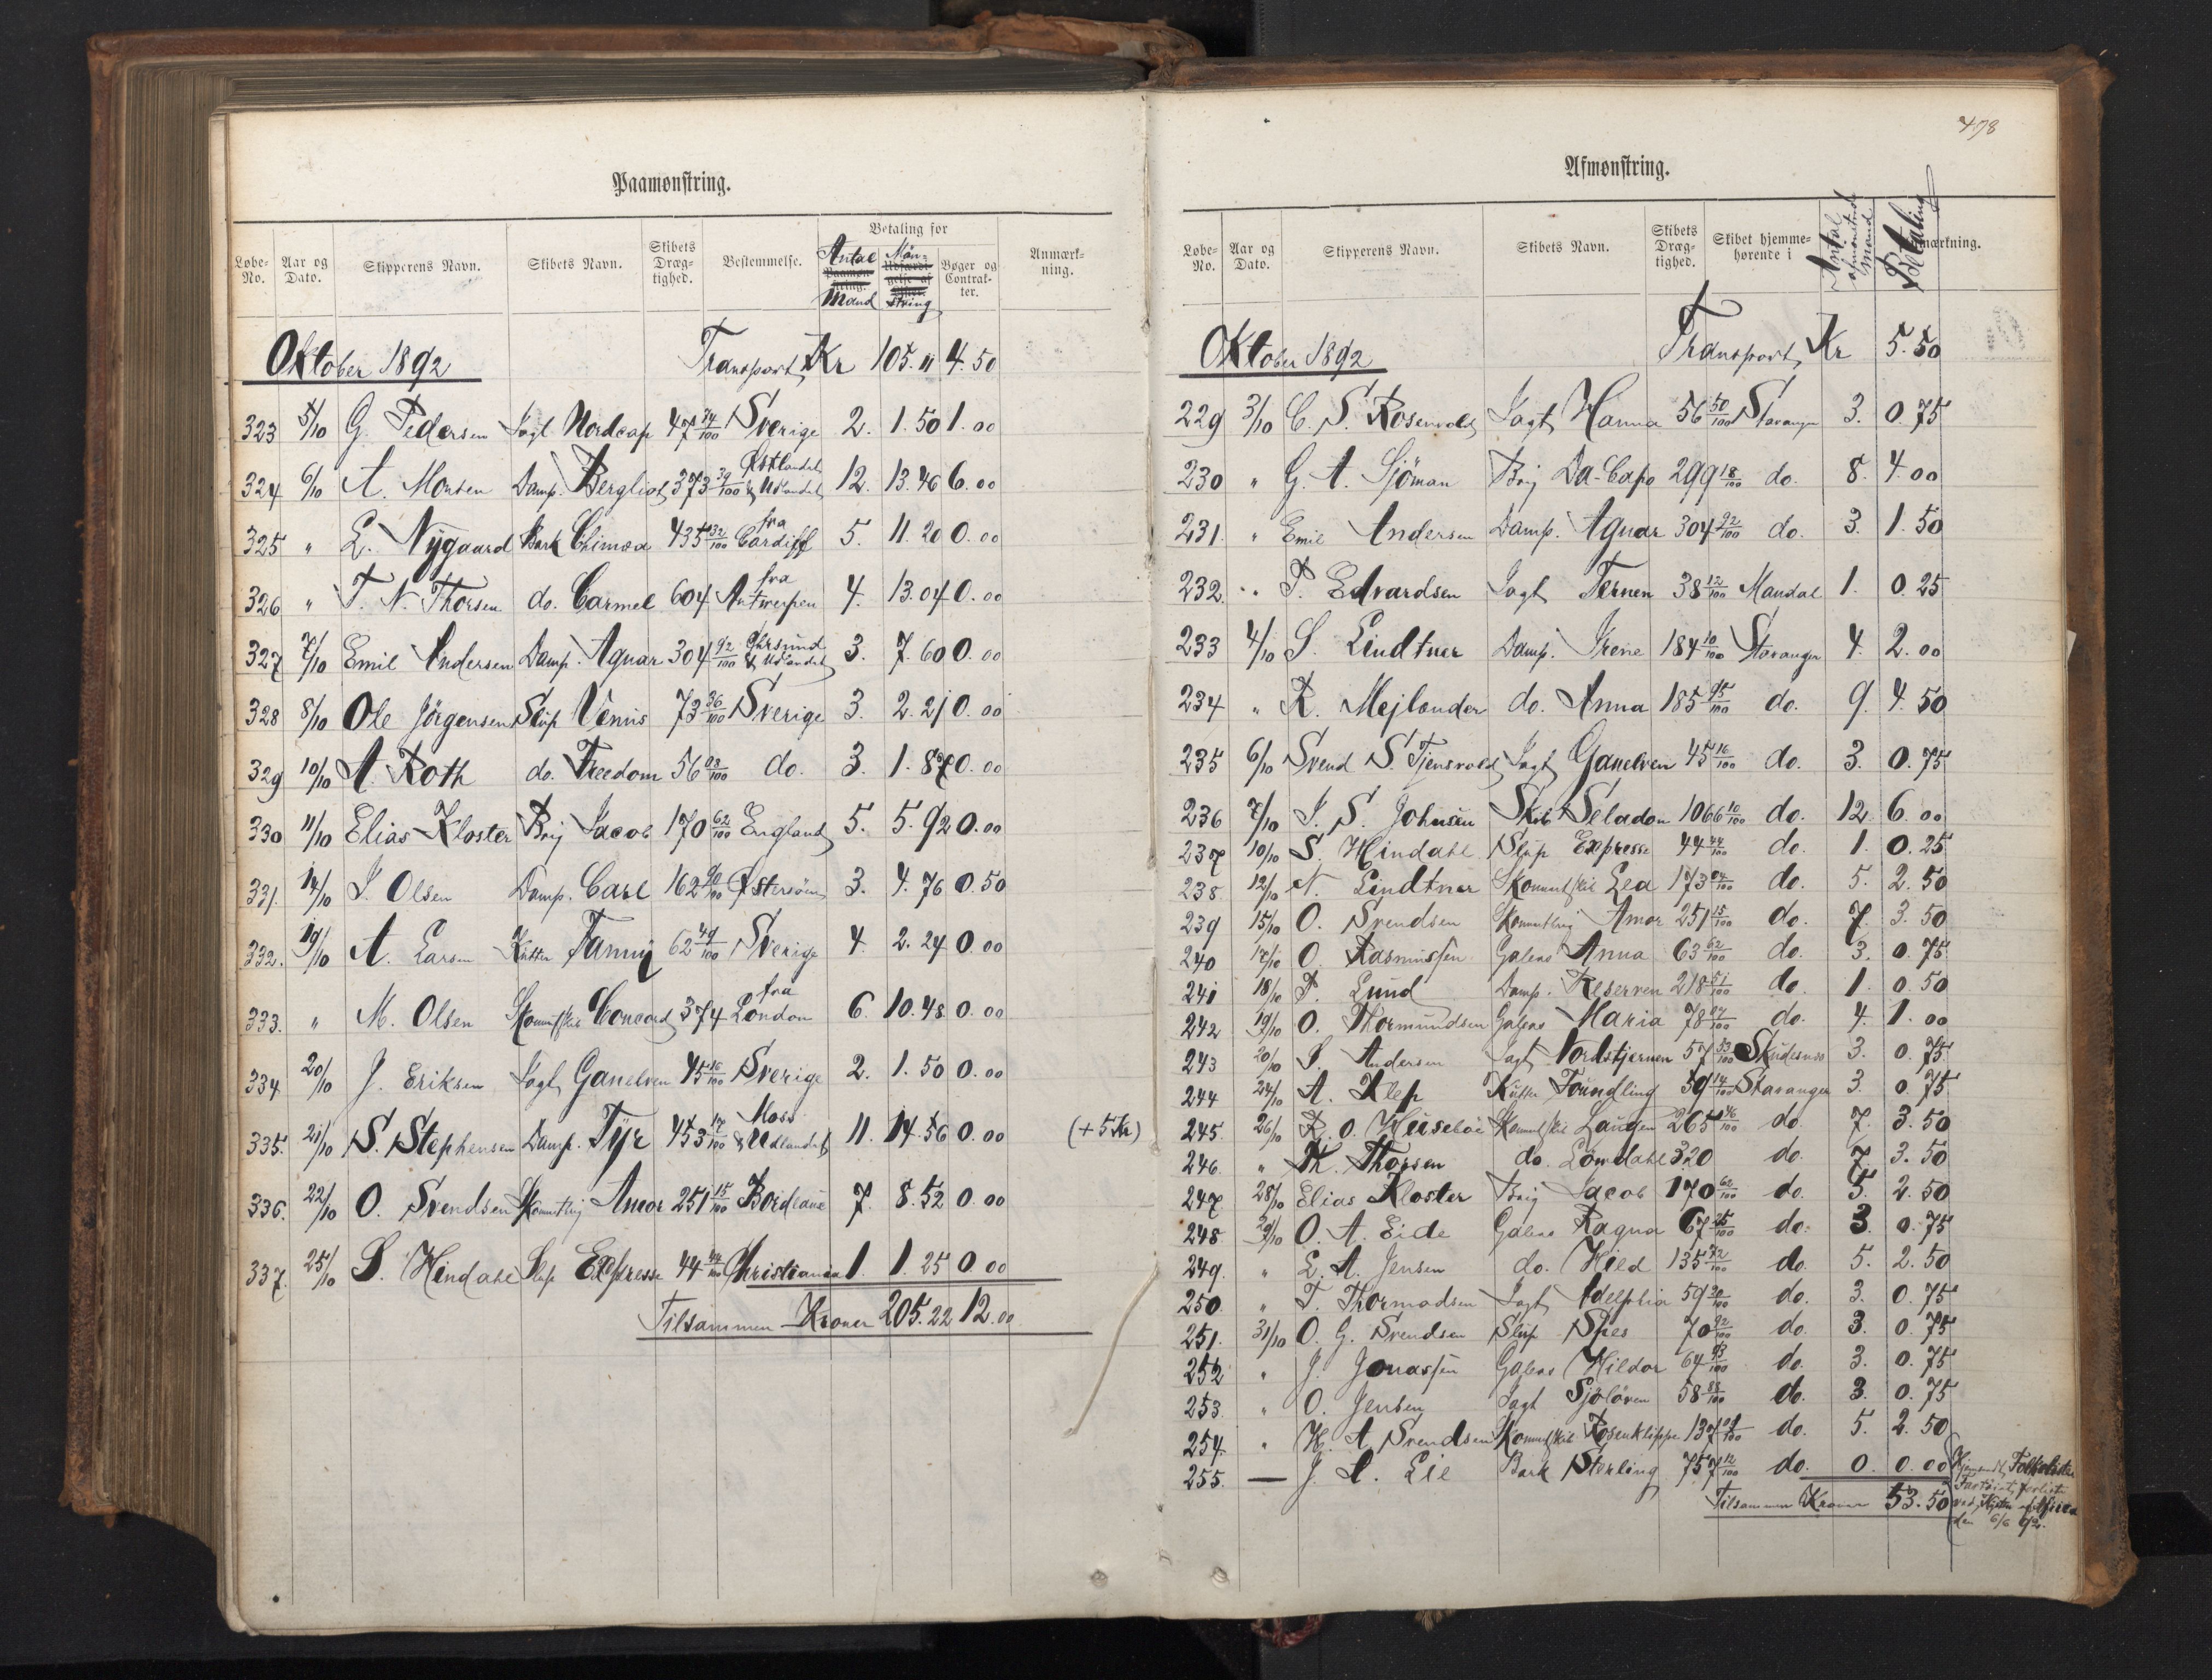 Paamønstring.
Løbe-No. Aar og Dato. Skipperens Navn. Skibets Navn. Skibets Drægtighed. Bestemmelse. Betaling for Antal Mand Mønstring Bøger og Contrakter. Anmærkning.
Oktober 1892 Transport Kr 105. 11 4. 50
323 5/10 G. Pedersen Jagt Nordcap 47 34/100 Sverige 2. 1. 50 1. 00
324 6/10 A. Monsen Damp. Bergliot 373 39/100 Østlandet & Udlandet 12. 13. 46 6. 00
325 " L. Nÿgaard Bark Chimæra 435 32/100 fra Cardiff 5. 11. 20 0. 00
326 " T. N. Thorsen do. Carmel 604 fra Antwerpen 4. 13. 04 0. 00
327 7/10 Emil Andersen Damp. Agnar 304 92/100 & Udlandet 3. 7. 60 0. 00
328 8/10 Ole Jörgensen Slup Venus 73 36/100 Sverige 3. 2. 21 0. 00
329 10/10 A. Roth do. Freedom 56 08/100 do. 3. 1. 87 0. 00
330 11/10 Elias Kloster Brig Jacob 170 62/100 England 5. 5. 92 0. 00
331. 14/10 J. Olsen Damp. Carl 162 90/100 Østersöen 3. 4. 76 0. 50
332. 19/10 A. Larsen Kutter Fanny 62 49/100 Sverige 4. 2. 24 0. 00
333. " M. Olsen Skonnertskib Concord 374 fra London 6. 10. 48 0. 00
334 20/10 J. Eriksen Jagt Ganelven 45 16/100 Sverige 2. 1. 50 0. 00
335. 21/10 S. Stephensen Damp. Tÿr 453 17/100 Moss & Udlandet 11. 14. 56 0. 00 (+ 5 Kr)
336. 22/10 O. Svendsen Skonnertbrig Amor 251 15/100 Bordeaux 7. 8. 52 0. 00
337. 25/10 S. Hindahl Slup Expresse 44 44/100 Christiania 1. 1. 25 0 00
Tilsammen Kroner 205. 22 12. 00
498
Afmønstring.
Løbe-No. Aar og Dato. Skipperens Navn. Skibets Navn. Skibets Drægtighed. Skibet hjemmehørende i Antal afmönstrede Mænd Betaling Anmærkning.
Oktober 1892 Transport Kr 5. 50
229 3/10 C. S. Rosenvold Jagt Hanna 56 50/100 Stavanger 3. 0. 75
230 " G. A. Sjöman Brig Da-Capo 299 18/100 do. 8. 4. 00
231. " Emil Andersen Damp. Agnar 304 92/100 do. 3. 1. 50
232. " P. Edvardsen Jagt Ternen 38 12/100 Mandal 1. 0. 25
233 4/10 S. Lindtner Damp. Irene 184 10/100 Stavanger 4. 2. 00
234 " R. Mejlænder do. Anna 185 95/100 do. 9. 4. 50
235 6/10 Svend S. Tjensvold Jagt Ganelven 45 16/100 do. 3. 0. 75
236 7/10 J. S. Johnsen Skib Seladon 1066 10/100 do. 12. 6. 00
237 10/10 S. Hindahl Slup Expresse 44 44/100 do. 1. 0. 25
238 12/10 N. Lindtner Skonnertskib Lea 173 04/100 do. 5. 2. 50
239 15/10 O. Svendsen Skonnertbrig Amor 251 15/100 do. 7. 3. 50
240 17/10 O. Rasmussen Galeas Anna 63 62/100 do. 3. 0. 75
241 18/10 P. Lund Damp. Reserven 218 51/100 do. 1. 0. 50
242 19/10 O. Thormundsen Galeas Maria 78 07/100 do. 4. 1. 00
243 20/10 S. Andersen Jagt Nordstjernen 57 53/100 Skudesnes 3. 0. 75
244 24/10 A. Klep Kutter Foundling 59 14/100 Stavanger 3. 0. 75
245 26/10 R. O. Husebøe Skonnertskib Laugen 265 46/100 do. 7. 3. 50
246. " Th. Thorsen do. Löwdahl 320 do. 7. 3. 50
247 28/10 Elias Kloster Brig Jacob 170 62/100 do. 5. 2. 50
248 29/10 O. A. Eide Galeas Ragna 67 25/100 do. 3. 0. 75
249. " L. A. Jensen do. Hild 135 72/100 do. 5. 2. 50
250. " T. Thormodsen Jagt Adelphia 59 30/100 do. 3. 0. 75
251. 31/10 O. G. Svendsen Slup Spes 70 92/100 do. 3. 0. 75
252 " J. Jonassen Galeas Hildor 64 93/100 do. 3. 0. 75
253. " O. Jensen Jagt Sjöløven 58 88/100 do. 3. 0. 75
254. " H. A. Svendsen Skonnertskib Rosenklippe 137 09/100 do. 5. 2. 50
255. — J. L. Lie Bark Sterling 757 12/100 do. 0. 0. 00 Folkeliste
Fartöiet forlist
Tilsammen Kroner 53. 50 ved Kysten af Africa
den 6/6 92.